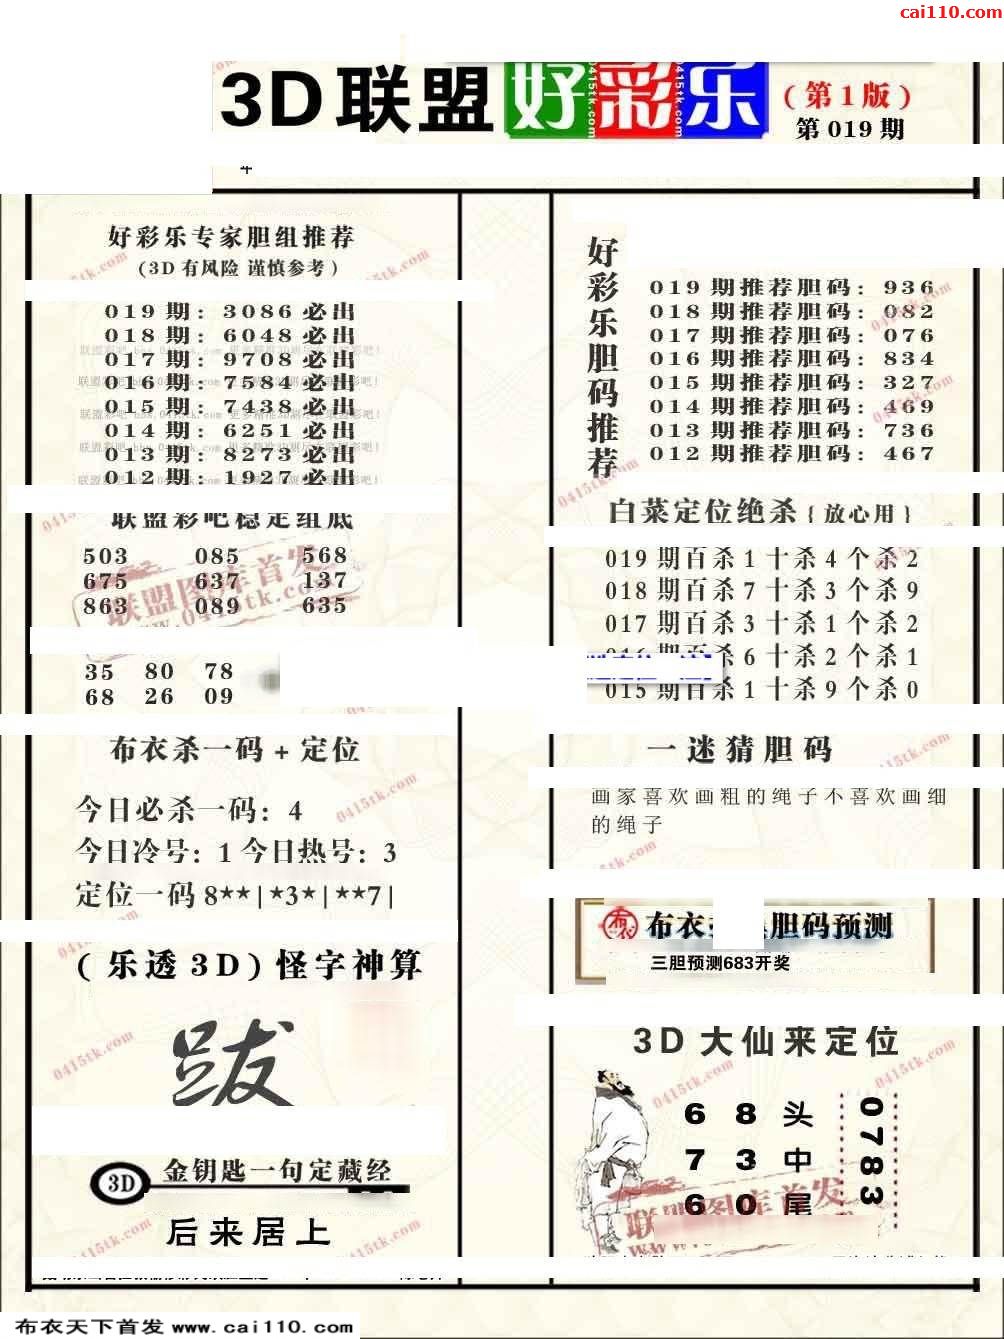 cai110.com
3D联盟 好彩乐
(第1版)
第019期
好彩乐专家胆组推荐
(3D有风险 谨慎参考)
019期: 3086必出
018期: 6048必出
017期: 9708必出
016期: 7584必出
015期: 7438必出
014期: 6251必出
013期: 8273必出
012期: 1927必出
联盟彩吧稳定组底
503 085 568
675 637 137
863 089 635
35 80 78
68 26 09
布衣杀一码+定位
今日必杀一码: 4
今日冷号: 1 今日热号: 3
定位一码 8★★|★3★|★★7|
(乐透3D)怪字神算
跋
3D 金钥匙一句定藏经
后来居上
好彩乐胆码推荐
019期推荐胆码: 936
018期推荐胆码: 082
017期推荐胆码: 076
016期推荐胆码: 834
015期推荐胆码: 327
014期推荐胆码: 469
013期推荐胆码: 736
012期推荐胆码: 467
白菜定位绝杀{放心用}
019期百杀1十杀4个杀2
018期百杀7十杀3个杀9
017期百杀3十杀1个杀2
016期百杀6十杀2个杀1
015期百杀1十杀9个杀0
一迷猜胆码
画家喜欢画粗的绳子不喜欢画细
的绳子
布衣 胆码预测
三胆预测683开奖
3D大仙来定位
6 8 头
7 3 中
6 0 尾
0783
联盟图库首发
0415tk.com
布衣天下首发 www.cai110.com